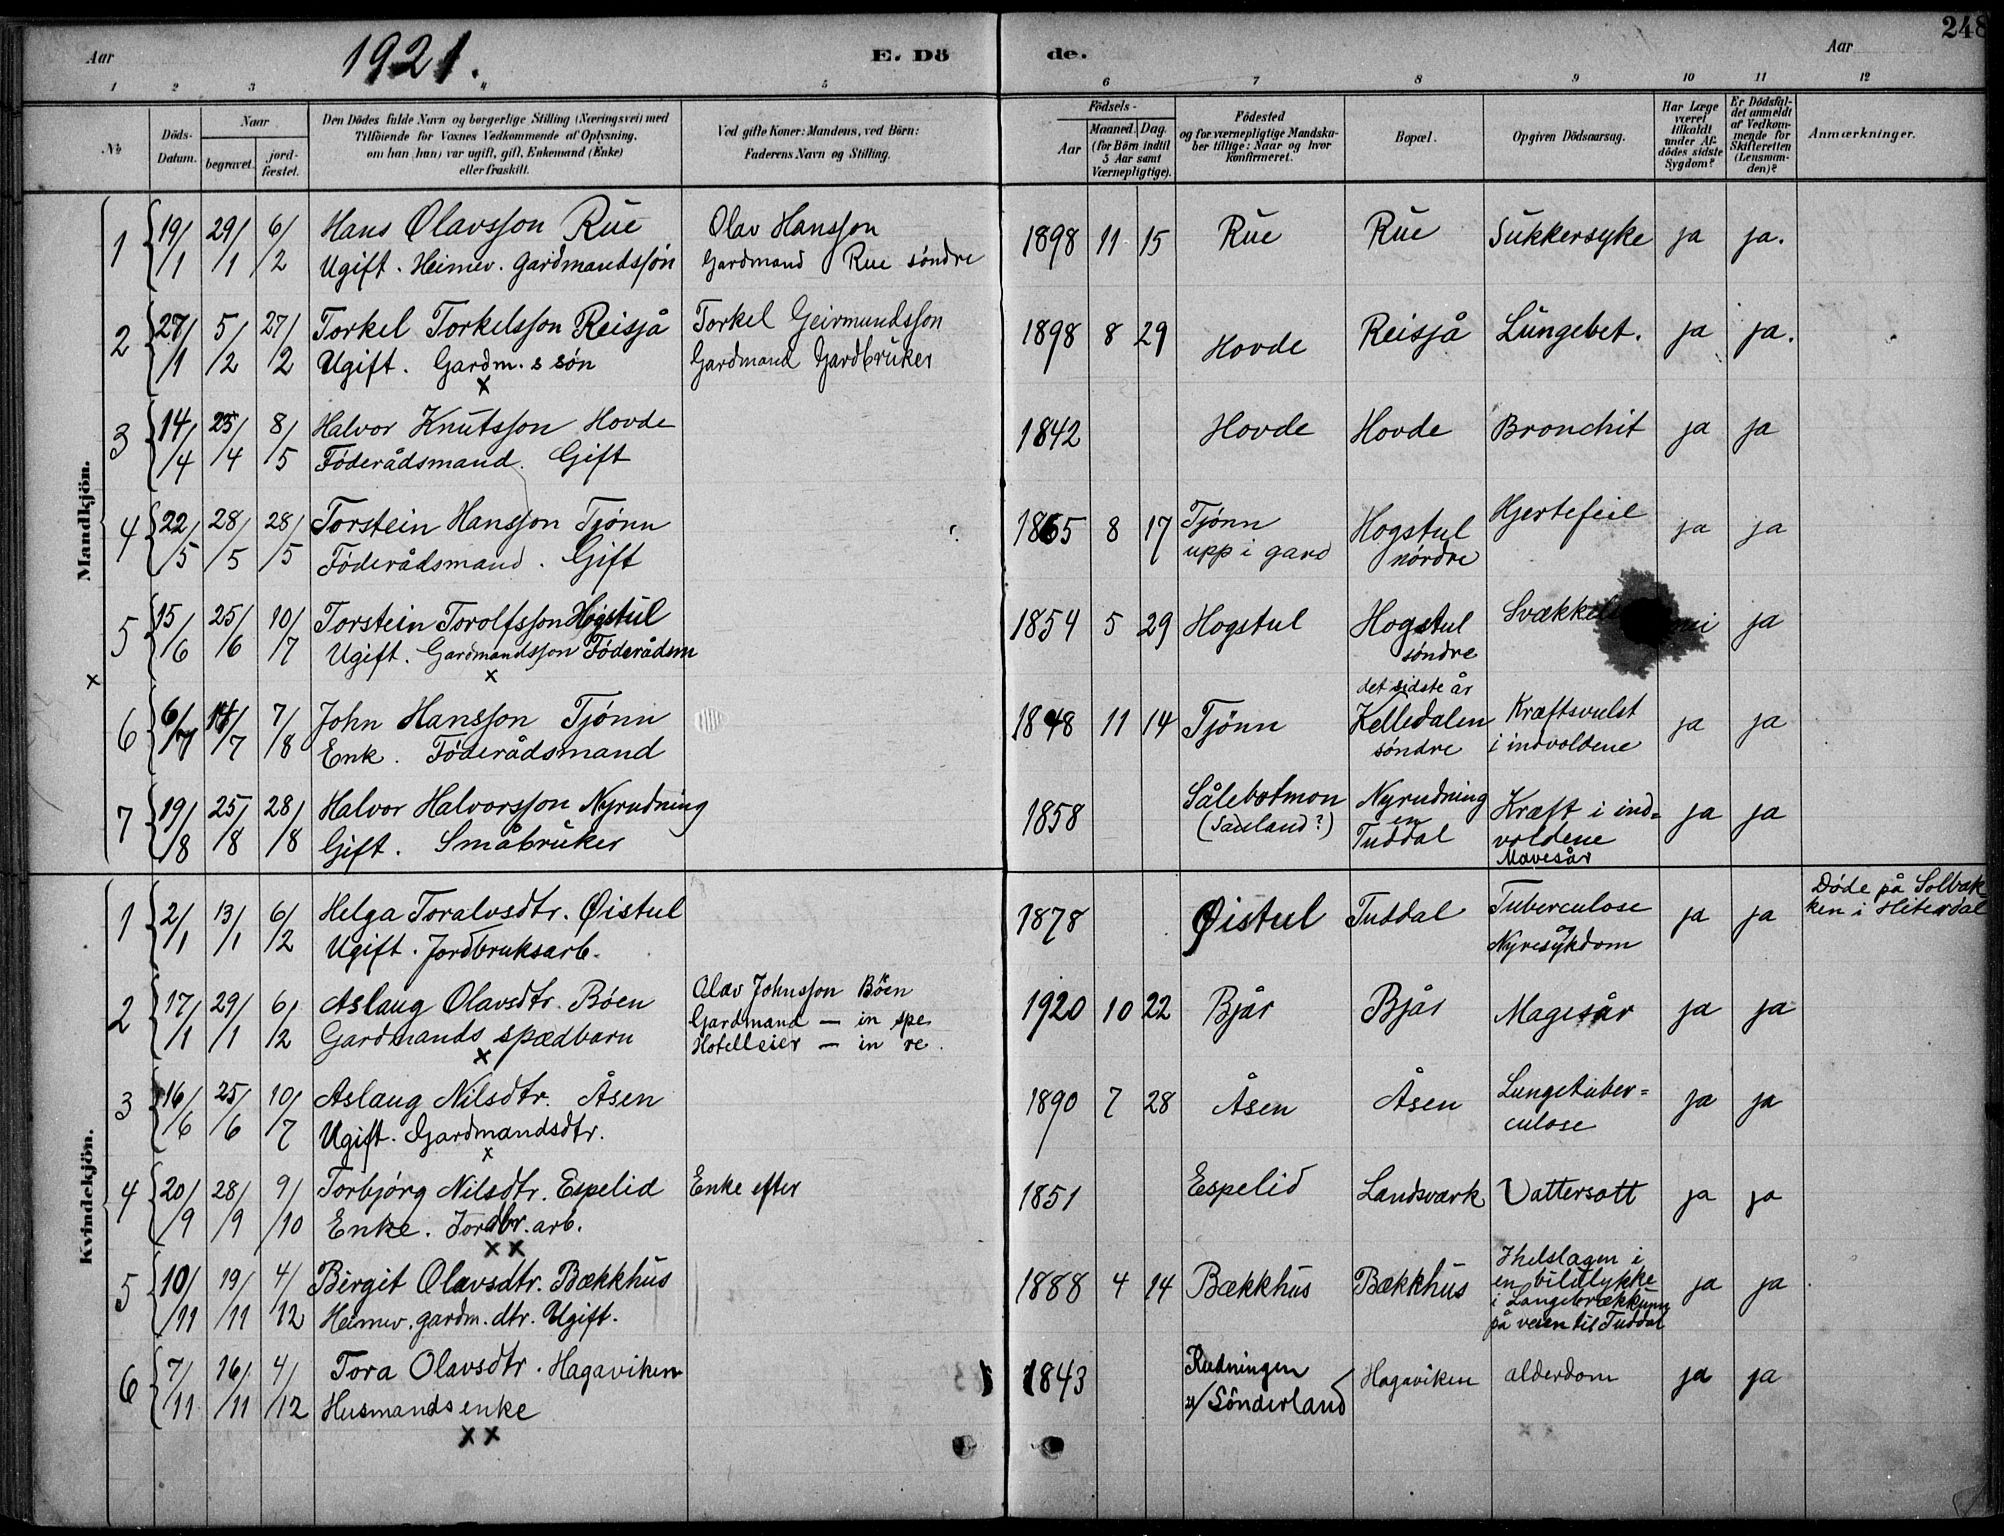 248
Aar 1921. E. Dö de. Aar
1 2 3 4 5 6 7 8 9 10 11 12
№ Döds-Datum. Naar begravet. jord-fæstet. Den Dödes fulde Navn og borgerlige Stilling (Næringsvei) med Tilföiende for Voxnes Vedkommende af Oplysning, om han (hun) var ugift, gift, Enkemand (Enke) eller fraskilt. Ved gifte Koner: Mandens, ved Börn: Faderens Navn og Stilling. Födsels- Aar Maaned. Dag. (for Börn indtil 5 Aar samt Værnepligtige). Födested og for værnepligtige Mandskaber tillige: Naar og hvor konfirmeret. Bopæl. Opgiven Dödsaarsag. Har Læge været tilkaldt under Afdödes sidste Sygdom? Er Dödsfaldet anmeldt af Vedkommende for Skifteretten (Lensmanden)? Anmærkninger.
Mandkjön.
1 19/1 29/1 6/2 Hans Olavsson Rue Olav Hansson 1898 11 15 Rue Rue Sukkersyke ja ja.
Ugift. Heimev. Gardmandssøn Gardmand Rue søndre
2 27/1 5/2 27/2 Torkel Torkelsson Reisjå Torkel Geirmundsson 1898 8 29 Hovde Reisjå Lungebet. ja ja.
Ugift. Gardm.s søn Gardmand Gardbruker
x
3 14/4 25/4 8/5 Halvor Knutsson Hovde 1842 Hovde Hovde Bronchit ja ja
Føderådsmand. Gift
4 22/5 28/5 28/5 Torstein Hansson Tjønn 1865 8 17 Tjønn Hogstul Hjertefeil ja ja
Føderådsmand. Gift upp i gard nordre
5 15/6 25/6 10/7 Torstein Torolfsson Hogstul 1854 5 29 Hogstul Hogstul ja
Ugift. Gardmandsson Føderådsm søndre
x x
6 6/7 /7 7/8 John Hansson Tjønn 1848 11 14 Tjønn det sidste år Kelledalen Kræftsvulst ja ja
Enk. Føderådsmand søndre i indvoldene
7 19/8 25/8 28/8 Halvor Halvorsson Nyrudning 1858 Sålebotmon Nyrudning Kræft i ind= ja ja
Gift. Småbruker (Sauland?) en Tuddal voldene
Mavesår
Kvindekjön.
1 2/1 13/1 6/2 Helga Toralvsdtr. Øistul 1878 Øistul Tuddal Tuberculose ja ja Døde på Solbak
Ugift. Jordbruksarb. og Nyresykdom ken i Hiterdal
2 17/1 29/1 6/2 Aslaug Olavsdtr. Bøen Olav Johnsson Bøen 1920 10 22 Bjår Bjår Magesår ja ja
Gardmands spædbarn Gardmand — in spe
x Hotelleier — in re.
3 16/6 25/6 10/7 Aslaug Nilsdtr. Åsen 1890 7 28 Åsen Åsen Lungetuber= ja ja
Ugift. Gardmandsdtr. culose
x
4 20/9 28/9 9/10 Torbjørg Nilsdtr. Espelid Enke efter 1851 Espelid Landsværk Vattersott ja ja
Enke. Jordbr. arb.
x x
5 10/11 19/11 4/12 Birgit Olavsdtr. Bækkhus 1888 4 14 Bækkhus Bækkhus Ihelslagen i ja ja
Heimev. gardm. dtr. Ugift. en bilulykke
i Langebrækkunn
på veien til Tuddal
6 7/11 16/11 4/12 Tora Olavsdtr. Hagaviken 1843 Rudningen Hagaviken alderdom ja ja
Husmandsenke u/ Sönderland
x x